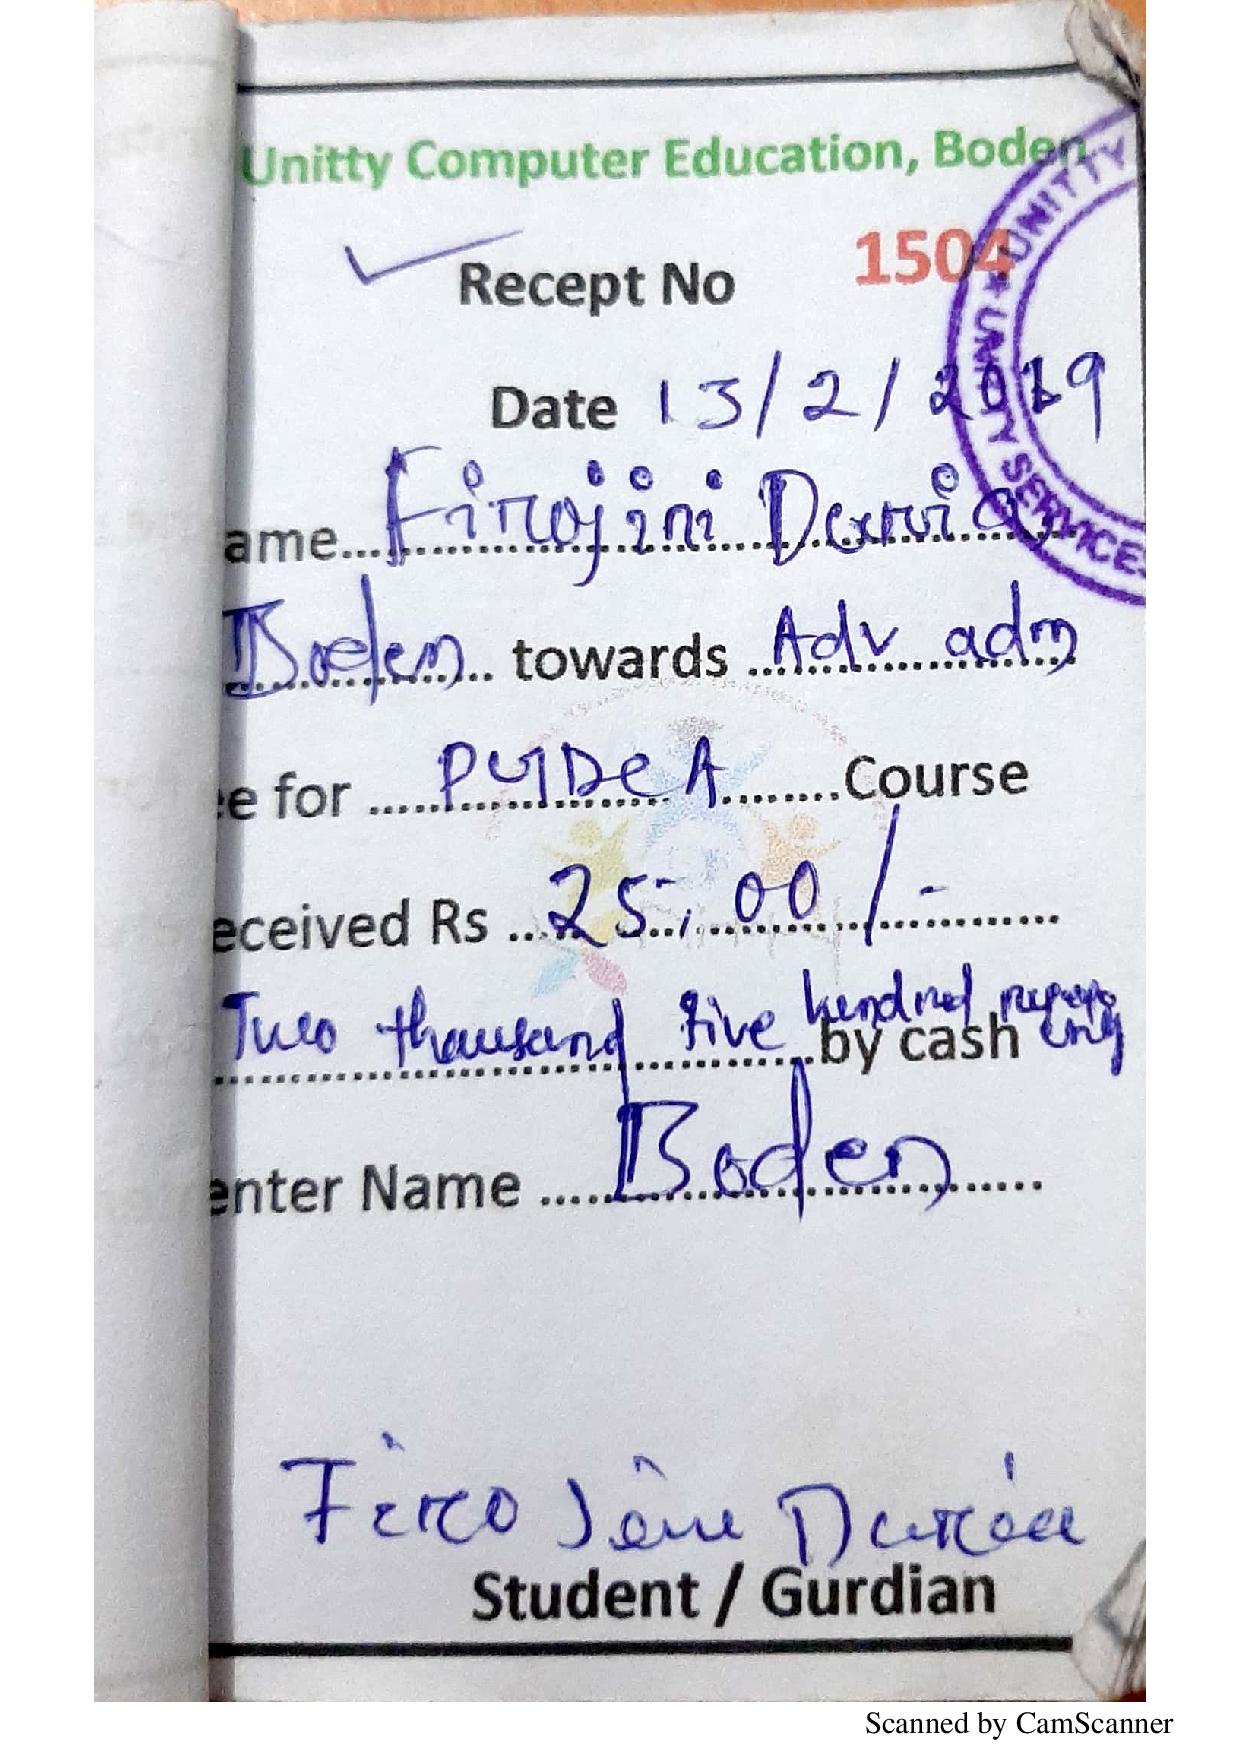 Unitty Computer Education, Boden
Recept No 1504
Date 13/2/2019
ame... Firojini Darvia
Boden towards Adv adm
e for PGDCA Course
eceived Rs 25,00/-
Two thousand five hundred
by cash only
enter Name Boden
Student / Gurdian
UNITTY
UNITY SERVICES
Scanned by CamScanner